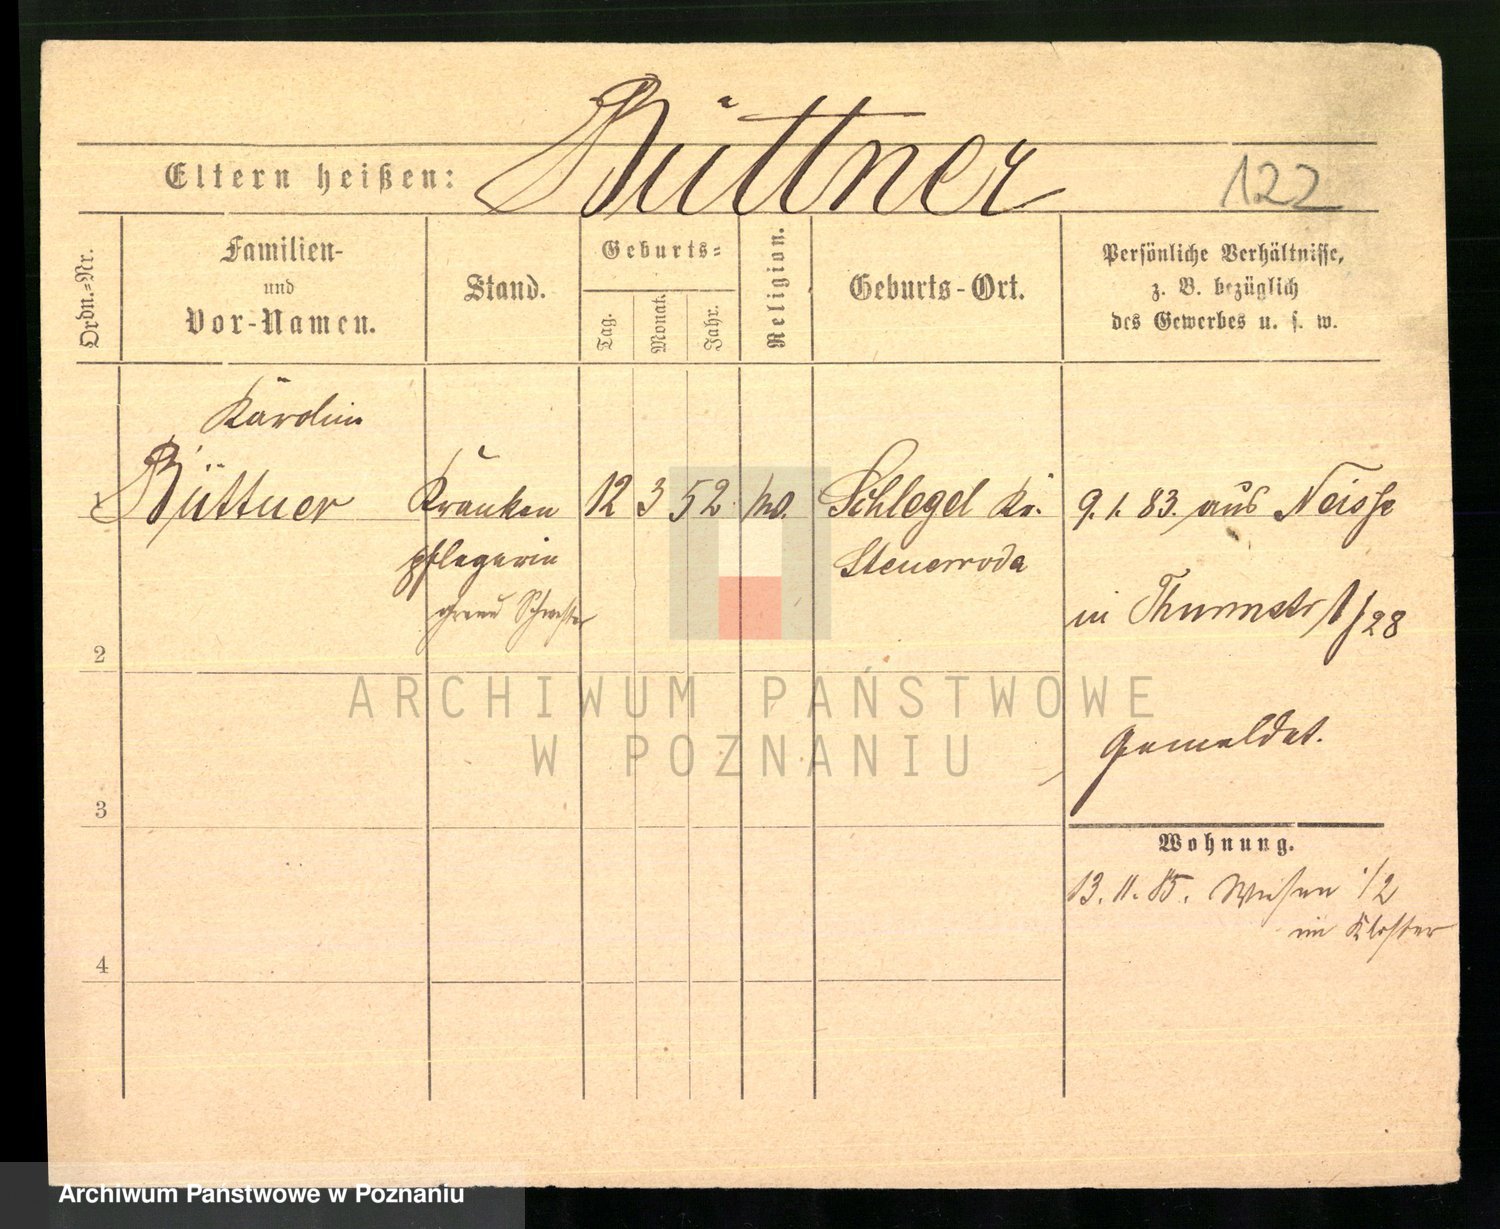 Büttner
Eltern heißen:
122
Ordn.-Nr.
Familien-
und
Vor-Namen.
Stand.
Geburts-
Tag.
Monat.
Jahr.
Religion.
Geburts-Ort.
Persönliche Verhältnisse,
z. B. bezüglich
des Gewerbes u. s. w.
Karolin
1 Büttner Kranken 12 3 52 Schlegel Kr. 9. 1. 83. aus Neisse
pflegerin
graue Schwester
in Thurmstr 1/28
2
ARCHIWUM PAŃSTWOWE
W POZNANIU
Gemeldet.
3
Wohnung.
13. 11. 85. Wiesen 1/2
im Kloster
4
Archiwum Państwowe w Poznaniu